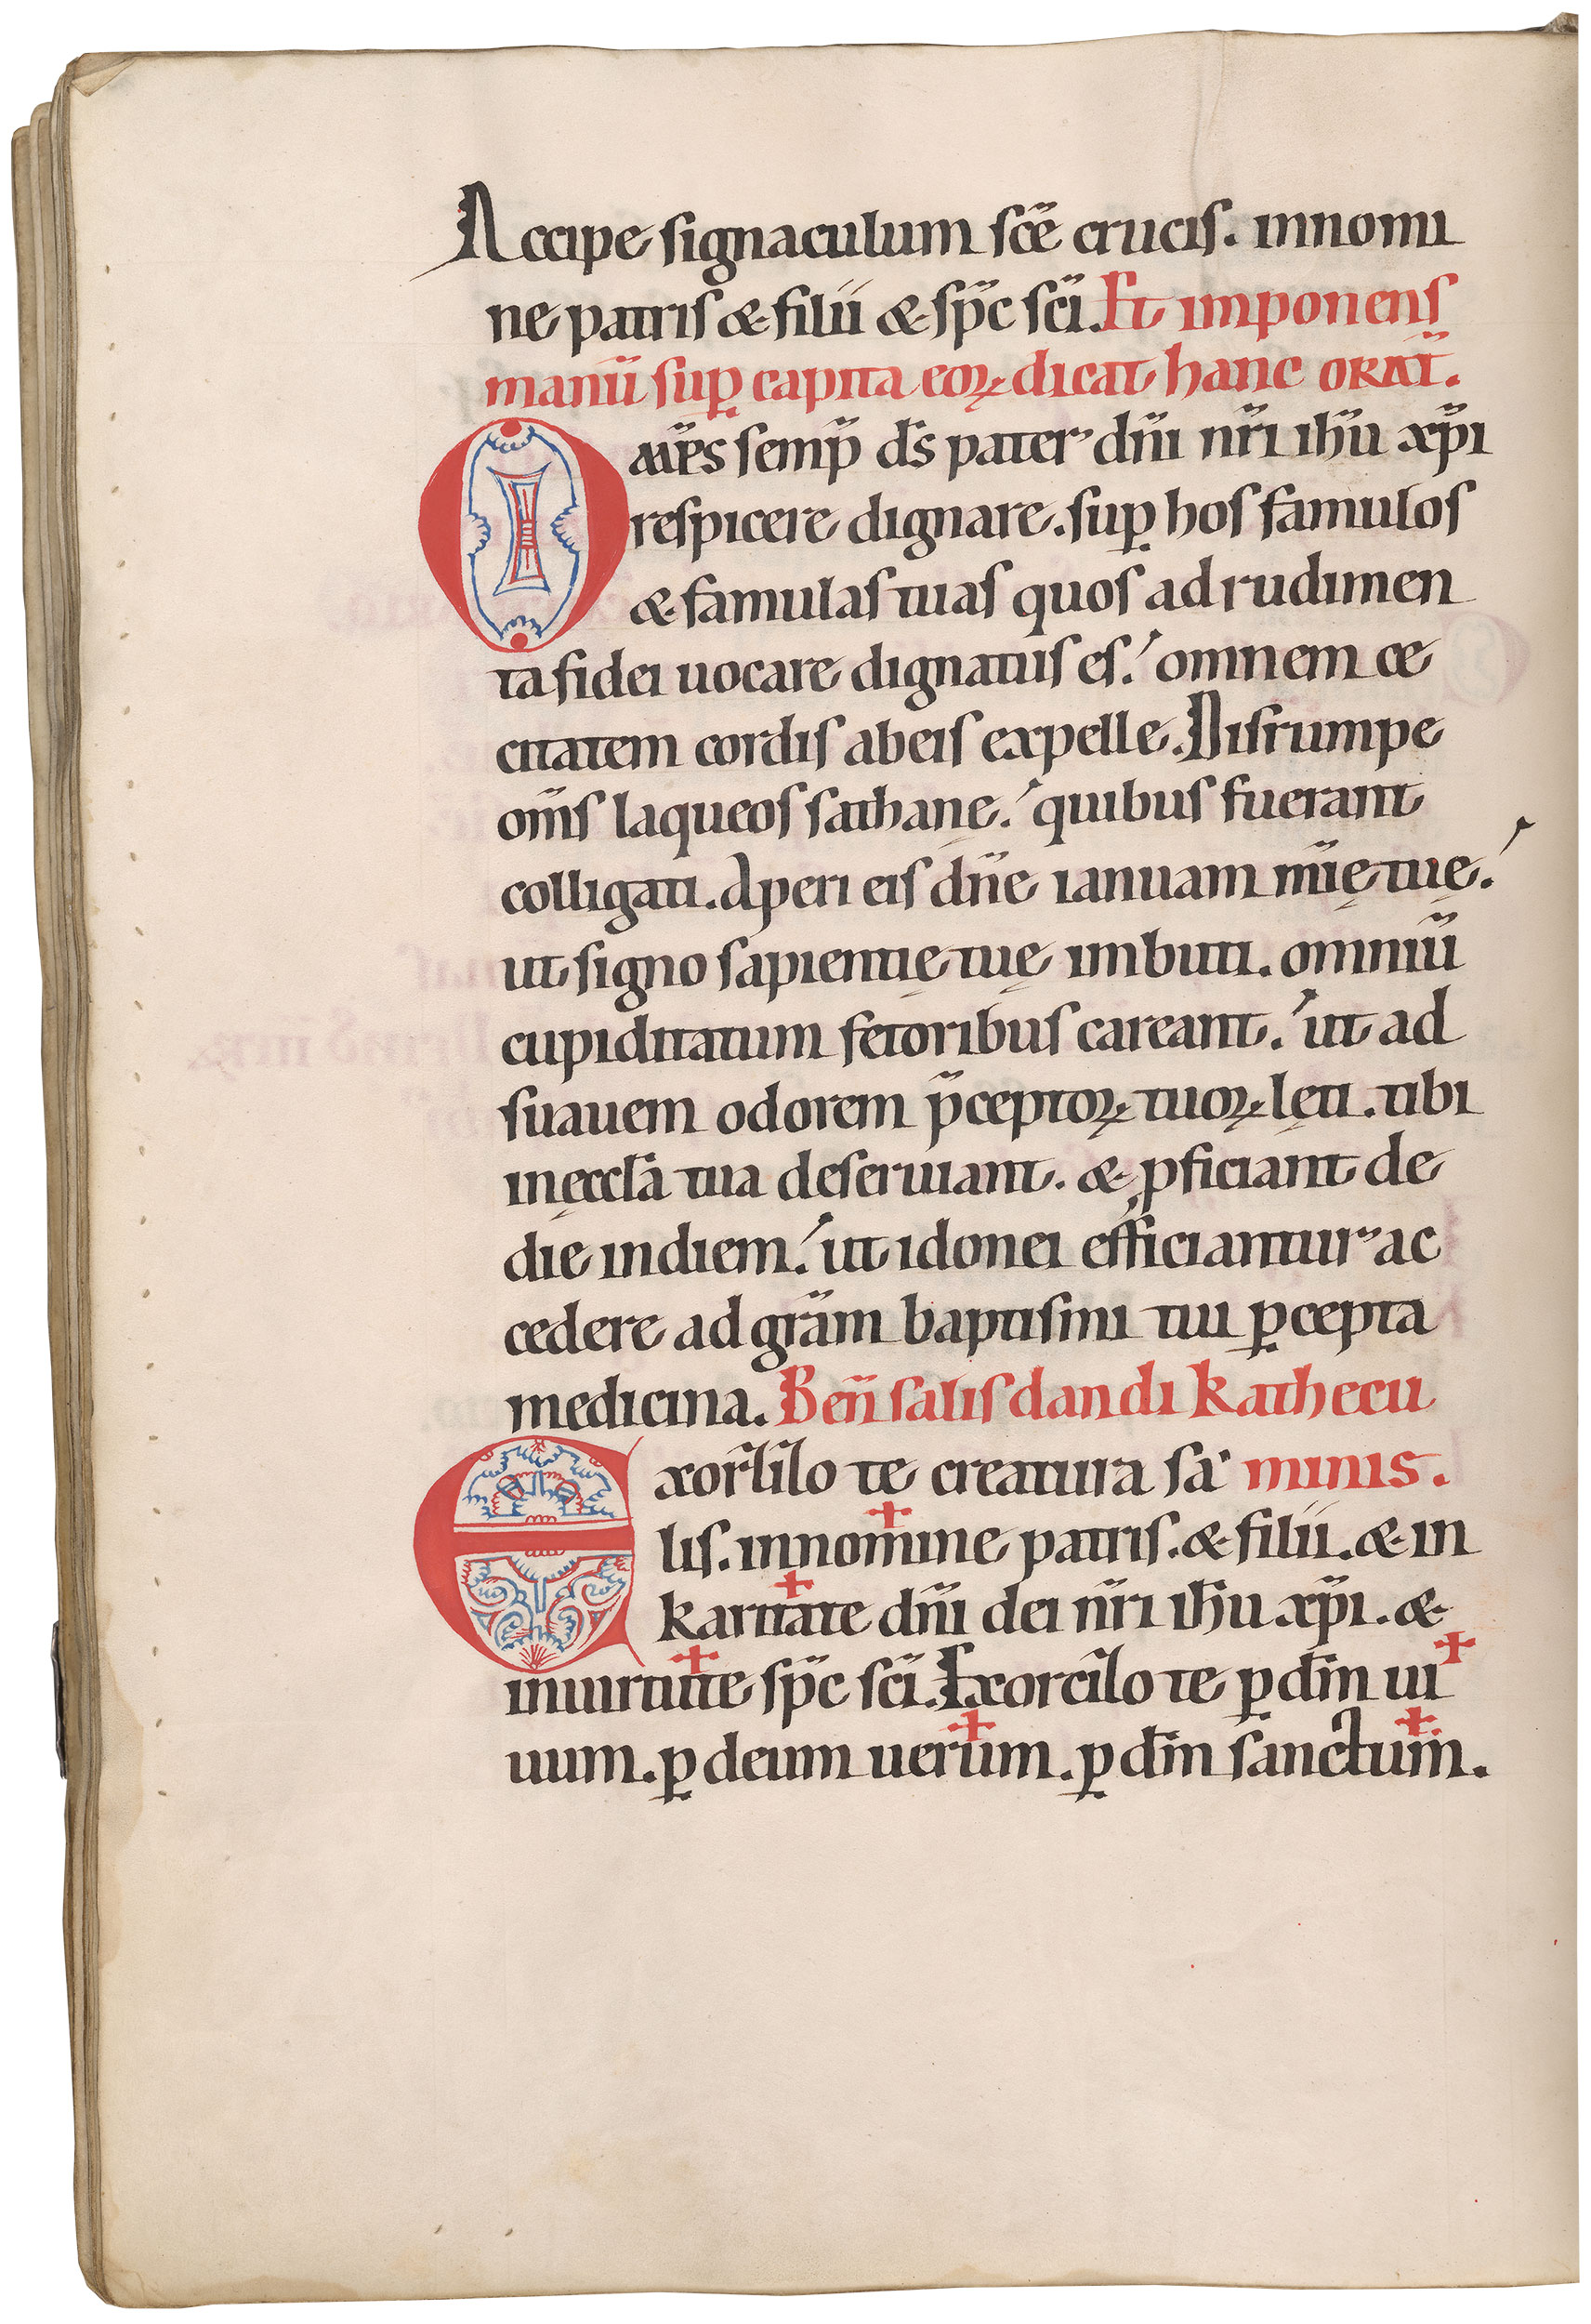 Accipe signaculum sc̄e crucis. innomi
ne patris & filii & sp̄c sc̄i. Et imponens
manū suꝑ capita eoꝝ dicat hanc ORAT̄.
Om̄ps semp̄ d̄s pater dn̄i nr̄i ih̄u xp̄i
respicere dignare. suꝑ hos famulos
& famulas tuas quos ad rudimen
ta fidei uocare dignatus es. omnem ce
citatem cordis abeis expelle. Disrumpe
om̄s laqueos sathanę. quibus fuerant
colligati. Aperi eis dn̄e ianuam mīę tuę.
ut signo sapientię tuę imbuti. omniū
cupiditatum fetoribus careant. ut ad
suauem odorem p̄ceptoꝝ tuoꝝ lęti. tibi
inęccl̄a tua deseruiant. & ꝓficiant de
die indiem. ut idonei efficiantur ac
cedere ad grām baptismi tui ꝑcepta
medicina. Ben̄ salis dandi kathecu
Exorcizo te creatura sa minis.
lis. innomine patris. & filii. & in
karitate dn̄i dei nr̄i ih̄u xp̄i. &
inuirtute sp̄c sc̄i. Exorcizo te ꝑ dm̄ ui
uum. ꝑ deum uerum. ꝑ dm̄ sanctum.